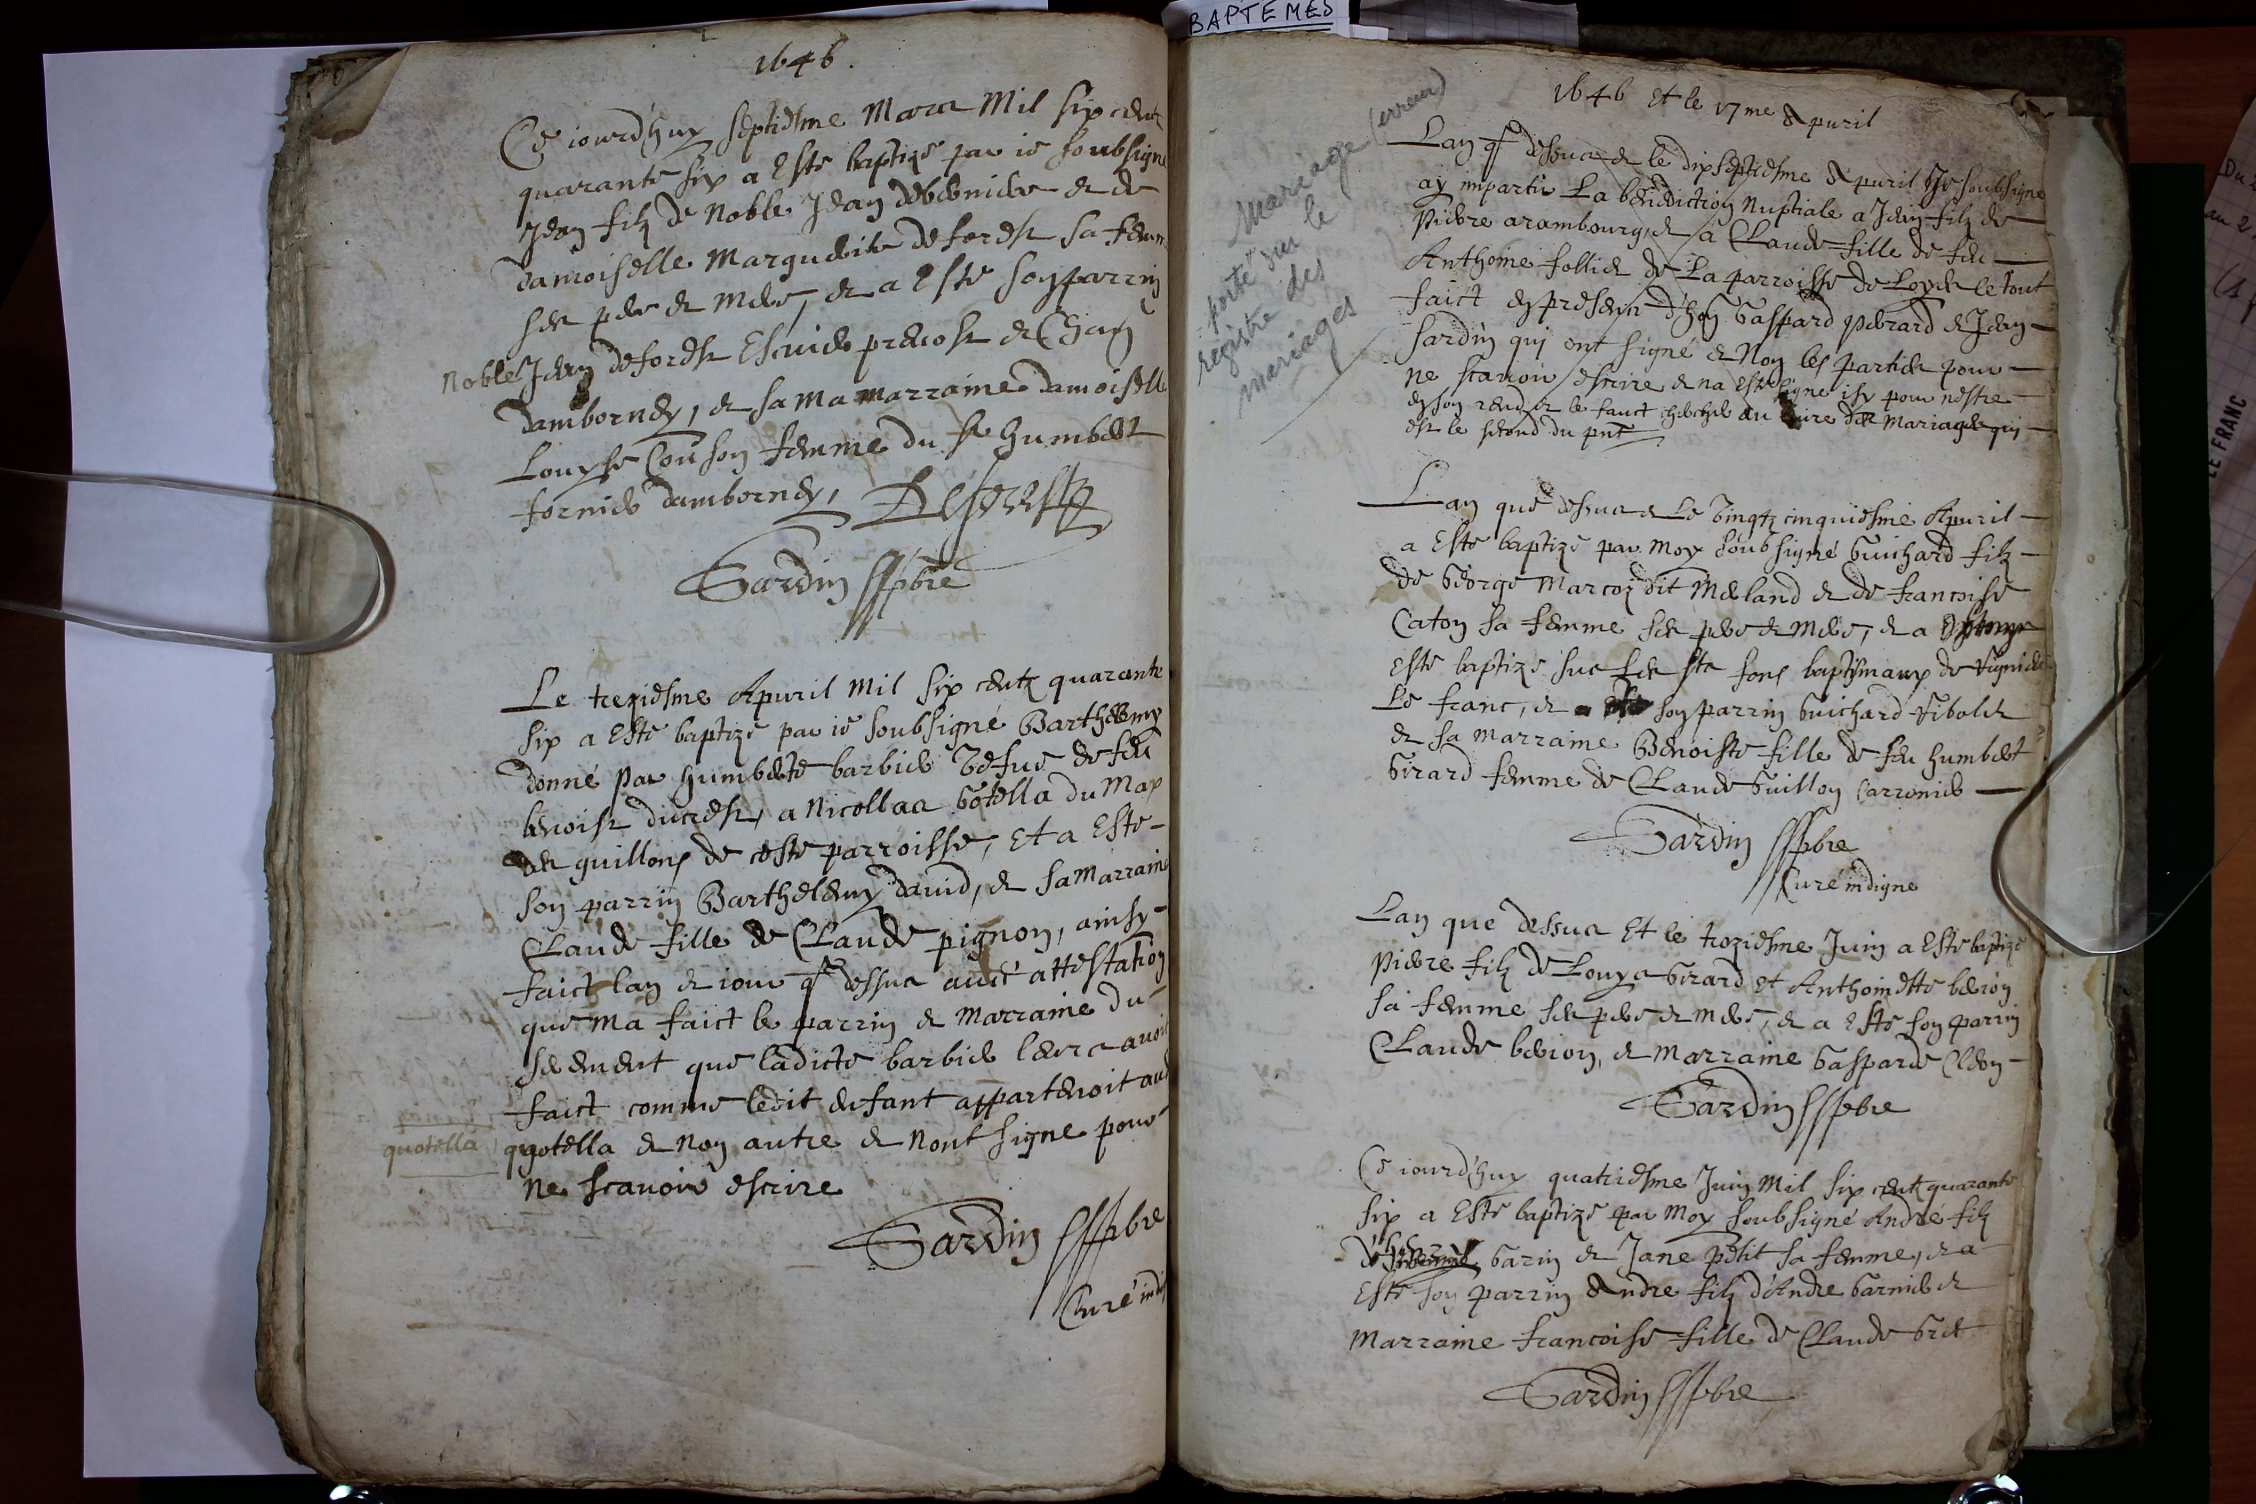 BAPTEMES
1646.
Ce iourd'huy septiesme Mars Mil six centz
quarante six a Esté baptizé par ie soubsigné
Jean filz de Noble Jean debernier et de
damoiselle Marguerite deforest sa femme
ses pere et Mere, et a Esté son parrin
Noble Jean deforest Escuier prevost et Chan
damborney, et sa Ma marraine damoiselle
Louyse Couson femme du Sr humbert
fornier damborney, Deforestz
Sardin pbre
Le treziesme Apuril Mil six centz quarante
six a Esté baptizé par ie soubsigné Barthelemy
donné par humberte barbier Vefue de feu
benoist ducrest, a Nicollas Gotella du Max
des guillons de ceste parroisse, Et a Esté
son parrin Barthelemy dauid, et sa Marraine
Claude fille de Claude pignon, ainsy
faict lan et iour q dessus auec attestation
que Ma faict le parrin et Marraine du
serement que ladicte barbier leurs auoit
faict comme ledit enfant appartenoit aud
quotella
qgotella et Non autre et Nont signe pour
Ne scauoir escrire
Sardin pbre
Curé indi
1646 Et le 17me Apuril
Mariage (erreur)
porté sur le
registre des
mariages
Lan q dessus et le dixseptiesme Apuril Je soubsigne
ay imparti La benediction Nuptiale a Jean filz de
Pierre arambourg, et a Claude fille de feu
Anthoine follier de La parroisse de Loyes le tout
faict en presence d'hon Gaspard perard et Jean
Sardin qui ont signé et Non les parties pour
ne scauoir escrire et na Esté signe isy pour nestre
en son rend et le fauct chercher au liure des Mariages qui
est le second du pnt
Lan que dessus et Le Vingtz cinquiesme Apuril
a Esté baptizé par Moy soubsigné Guichard filz
de George Marcoz dit Merland et de francoise
Caton sa femme ses pere et Mere, et a
Esté baptizé sus les sts fons baptismaux de Vignieu
Le franc, et a esté son parrin Guichard Vibolet
et sa marraine Benoiste fille de feu humbert
Girard femme de Claude Guillon Carronier
Sardin pbre
Curé indigne
Lan que dessus Et le troziesme Juin a Esté baptizé
Pierre filz de Louys Girard et Anthoinette berion
sa femme ses pere et mere, et a Esté son parrin
Claude berion, et Marraine Gasparde Cleon
Sardin pbre
Ce iourd'huy quatriesme Juin Mil six centz quarante
six a Esté baptizé par Moy soubsigné André filz
Garin et Jane petit sa femme, et a
Esté son parrin Andre filz d'Andre Garnier et
Marraine francoise fille de Claude Gret
Sardin pbre
LE FRANC